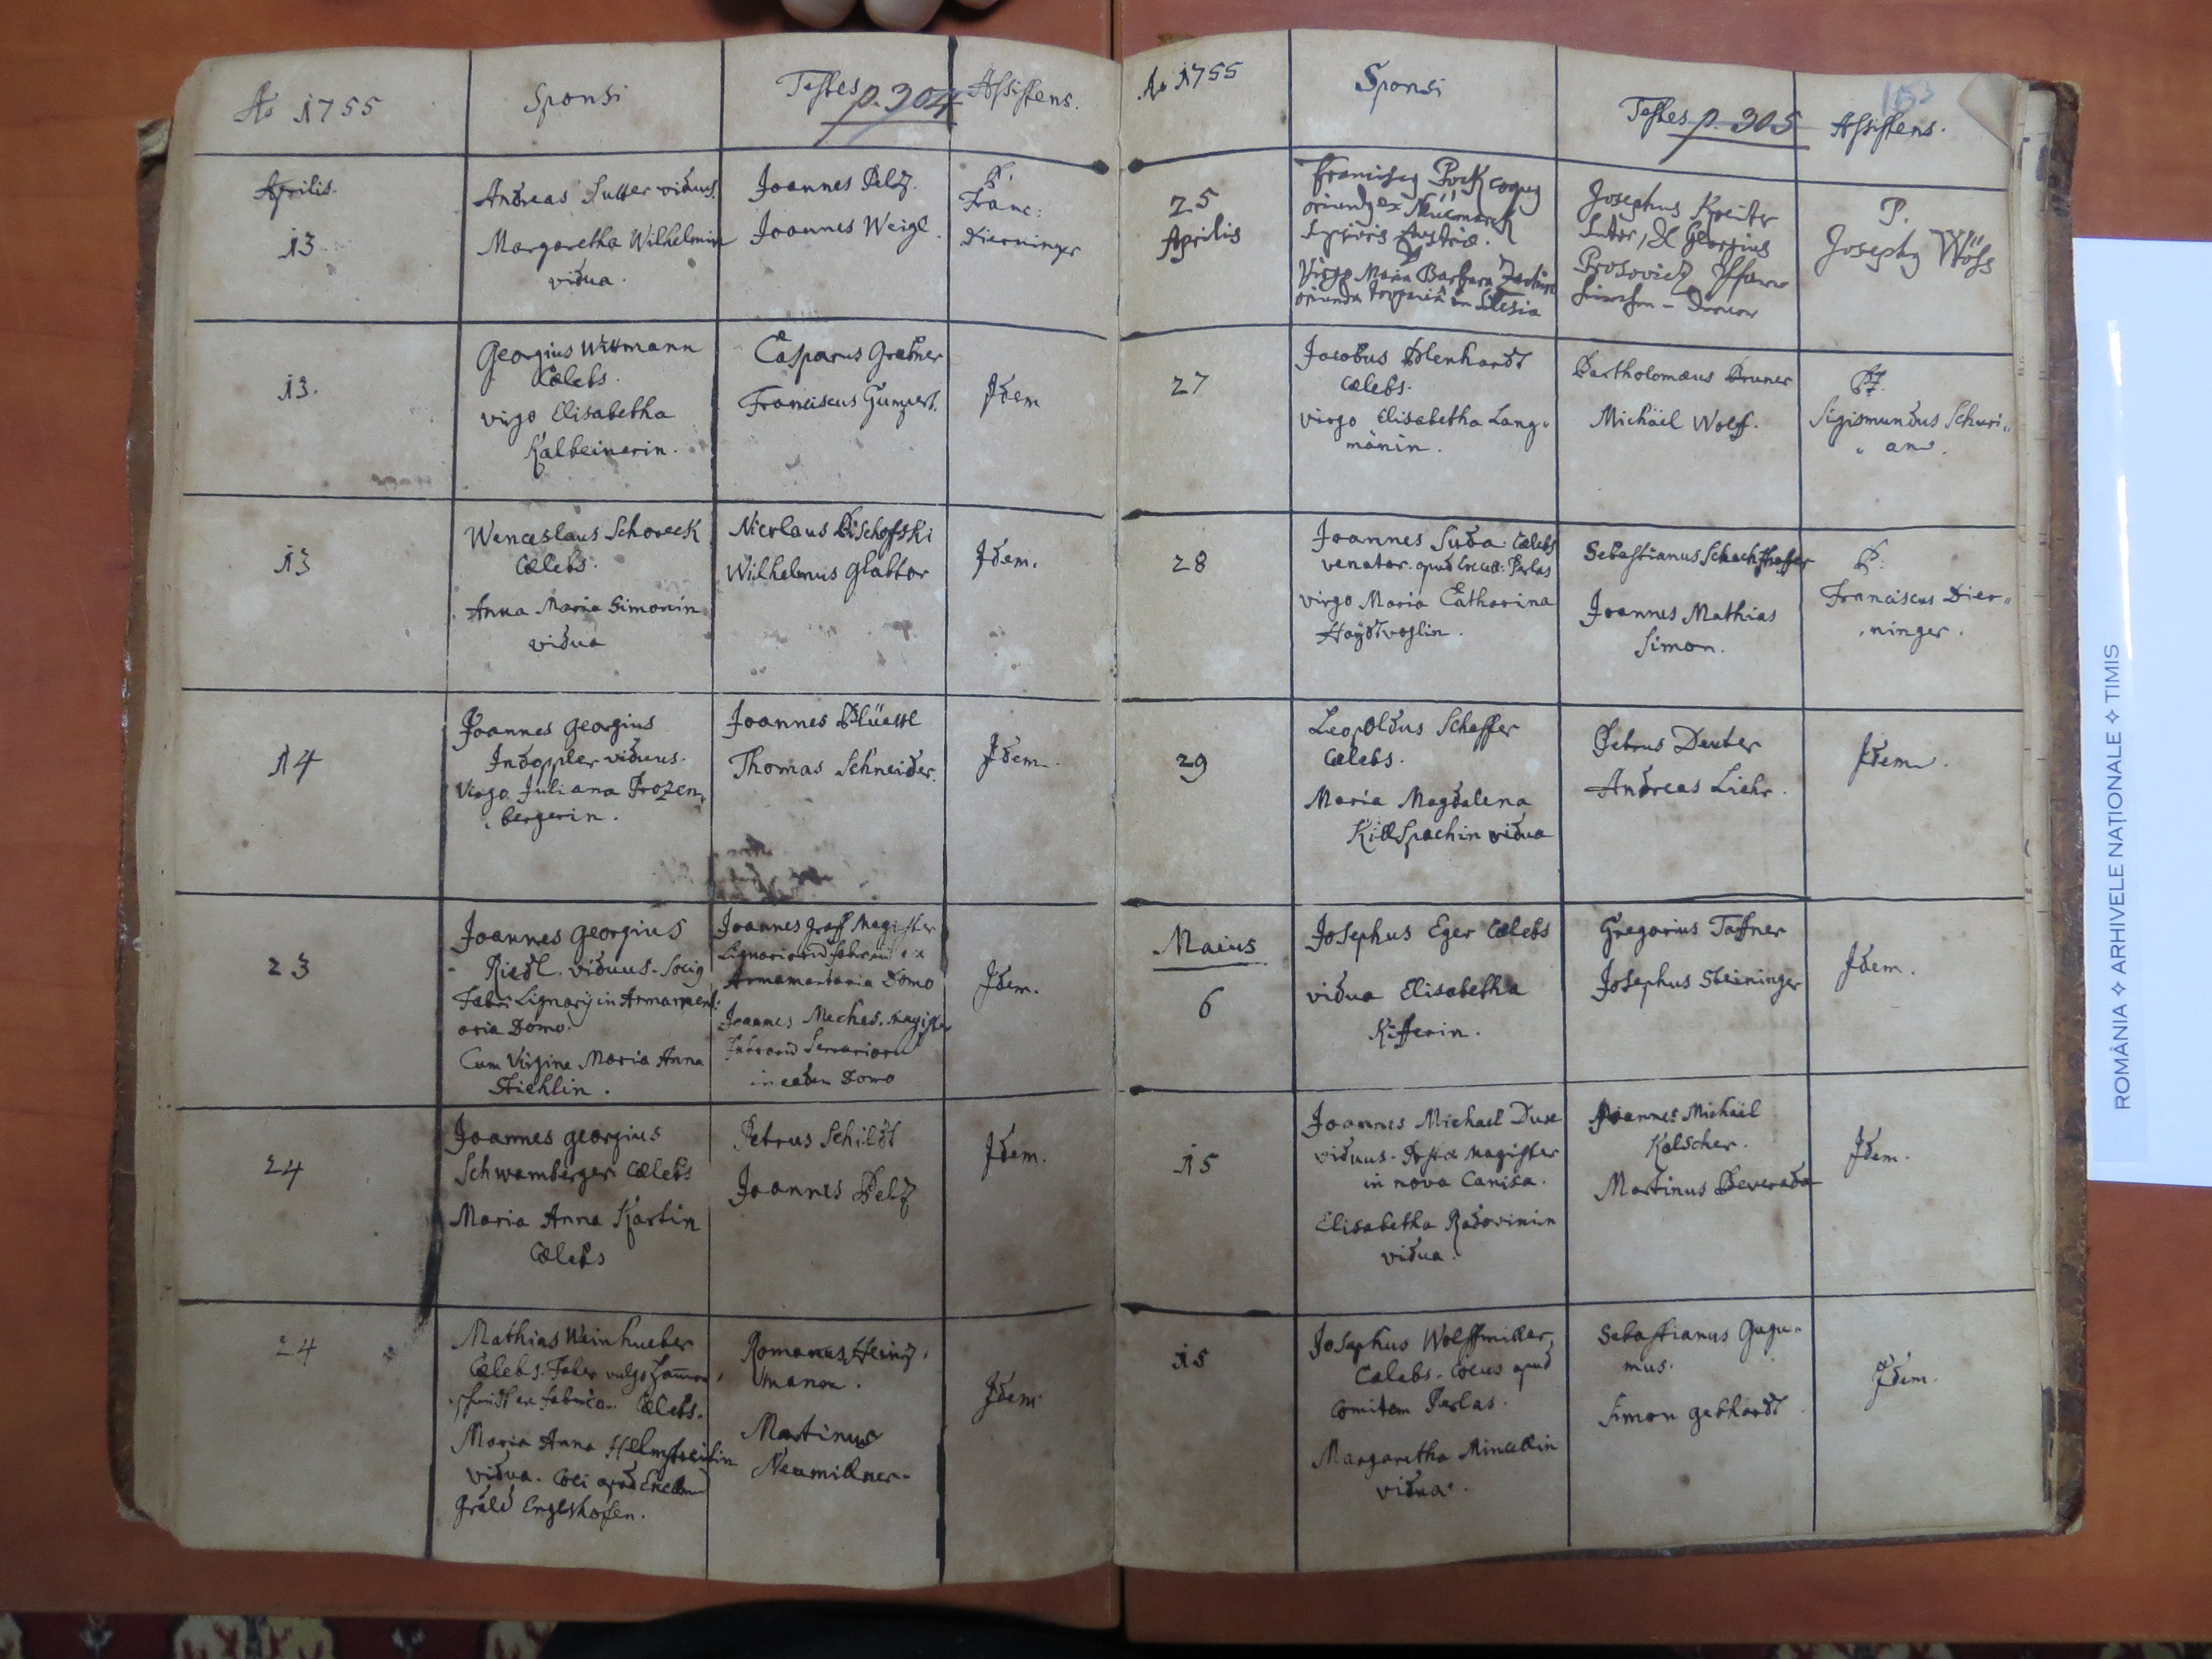 Ao 1755
Sponsi
Testes p. 304
Assistens.
Aprilis.
13
Andreas Sutter viduus.
Margaretha Wilhelmin
vidua.
Joannes Pelz.
Joannes Weigl.
P.
Franc:
Dierninger
13.
Georgius Wittmann
Cælebs.
virgo Elisabetha
Kalbeinerin.
Casparus Gratner
Franciscus Gumpert.
Idem
13
Wenceslaus Schoreck
Cælebs.
Anna Maria Simonin
vidua
Nicolaus Bischofski
Wilhelmus Glabtor
Idem.
14
Joannes Georgius
Indoppler viduus.
Virgo Juliana Prozen„
bergerin.
Joannes
Thomas Schneider.
Idem.
23
Joannes Georgius
Riedl. viduus. Sociq
Fabri Lignarij in Armament:
aria Domo.
Cum Virgine Maria Anna
Stichlin.
Joannes Graff Magister
Armamentaria Domo
Joannes Meches. Magister
in eadem Domo
Idem.
24
Joannes Georgius
Schwamberger Cælebs
Maria Anna Kartin
Cælebs
Petrus Schildt
Joannes Pelz
Idem.
24
Mathias Weinhueber
Cælebs. Faber vulgo
Cælebs.
Maria Anna
vidua. Coci apud
Engelshofen.
Romanus Heinz„
mann.
Martinus
Neumillner.
Idem
Ao 1755
Sponsi
Testes p. 305
Assistens.
153
25
Aprilis
Franciscq Pock coquq
oriundq ex Neümarck
Superioris Austriæ.
Virgo Maria Barbara
oriunda Troppaviâ in Silesia
Josephus Kreiter
Sutor, & Georgius
Prosovicz
P.
Josephq Wöss
27
Jacobus Adlenhardt
Cælebs.
virgo Elisabetha Lang„
mänin.
Bartholomæus Bruner
Michäel Wolff.
P.
Sigismundus Schuri„
„an.
28
Joannes Suda. Cælebs
venator. apud Excell: Perlas
virgo Maria Catharina
Haydtvoglin.
Sebastianus Schachthoffer
Joannes Mathias
Simon.
P.
Franciscus Dier„
ninger.
29
Leopoldus Schaffer
Cælebs.
Maria Magdalena
Killspachin vidua
Petrus Deuter
Andreas Liehr.
Idem.
Maius
6
Josephus Eger Cælebs
vidua Elisabetha
Kifferin.
Gregorius Taffner
Josephus Steininger
Idem.
15
Joannes Michael Duse
viduus. Postæ Magister
in nova Canisa.
Elisabetha Radovinin
vidua.
Joannes Michäel
Kalscher.
Martinus Beverada
Idem.
15
Josephus Wolffmiller,
Cælebs. Cocus apud
Comitem Perlas.
Margaretha Mincellin
vidua.
Sebastianus Gugu„
mus.
Simon Gebhardt
Idem.
ROMÂNIA ✧ ARHIVELE NAȚIONALE ✧ TIMIS